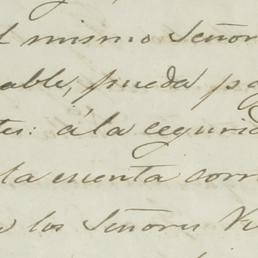 l mismo Señor
able, pueda pa
tes: á la segurid
la cuenta corri
los Señores Vi